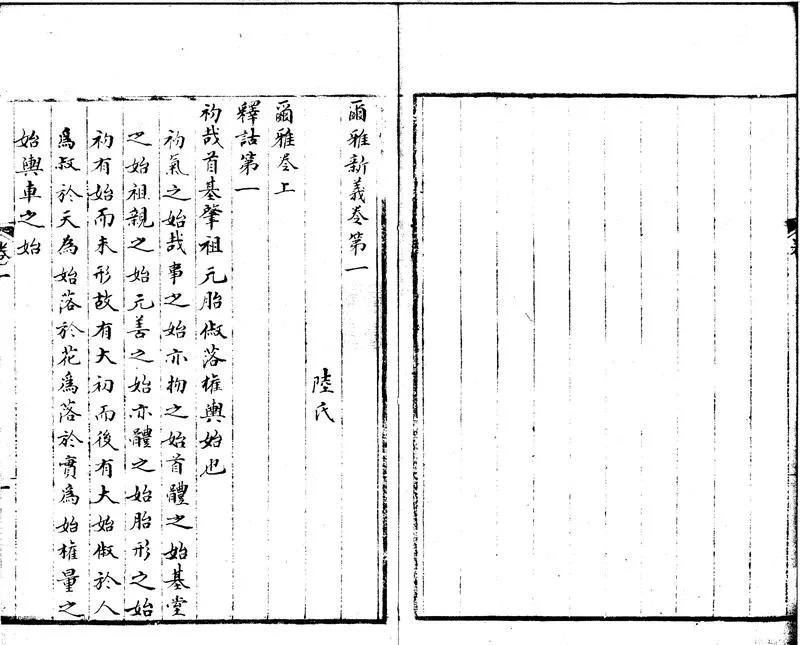 爾雅新義卷第一
陸氏
爾雅卷上
釋詁第一
初哉首基肇祖元胎俶落權輿始也
初氣之始哉事之始亦物之始首體之始基堂
之始祖親之始元善之始亦體之始胎形之始
初有始而未形故有大初而後有大始俶於人
為叔於天為始落於花為落於實為始權量之
始輿車之始
卷一
一